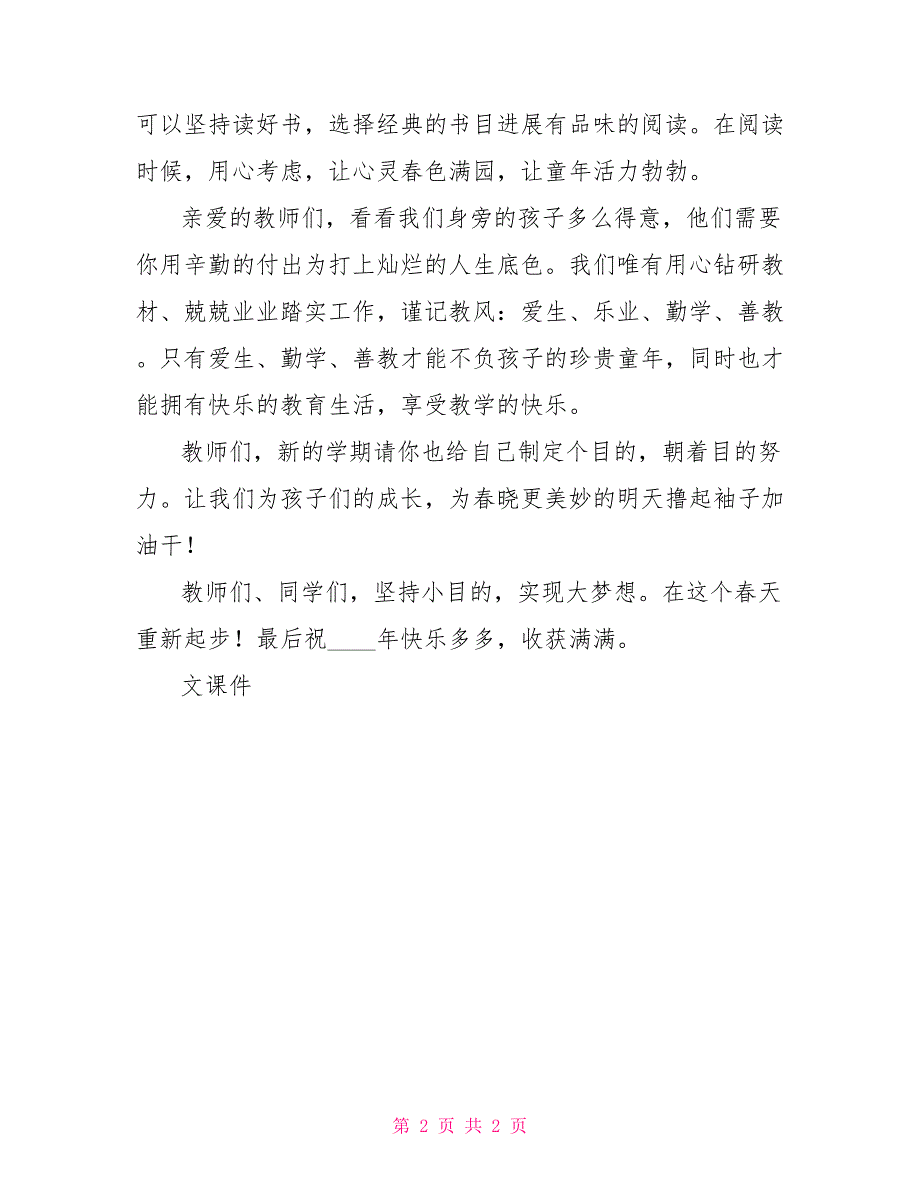 可以坚持读好书，选择经典的书目进展有品味的阅读。在阅读
时候，用心考虑，让心灵春色满园，让童年活力勃勃。
亲爱的教师们，看看我们身旁的孩子多么得意，他们需要
你用辛勤的付出为打上灿烂的人生底色。我们唯有用心钻研教
材、兢兢业业踏实工作，谨记教风：爱生、乐业、勤学、善教
。只有爱生、勤学、善教才能不负孩子的珍贵童年，同时也才
能拥有快乐的教育生活，享受教学的快乐。
教师们，新的学期请你也给自己制定个目的，朝着目的努
力。让我们为孩子们的成长，为春晓更美妙的明天撸起袖子加
油干！
教师们、同学们，坚持小目的，实现大梦想。在这个春天
重新起步！最后祝____年快乐多多，收获满满。
文课件
第 2 页 共 2 页